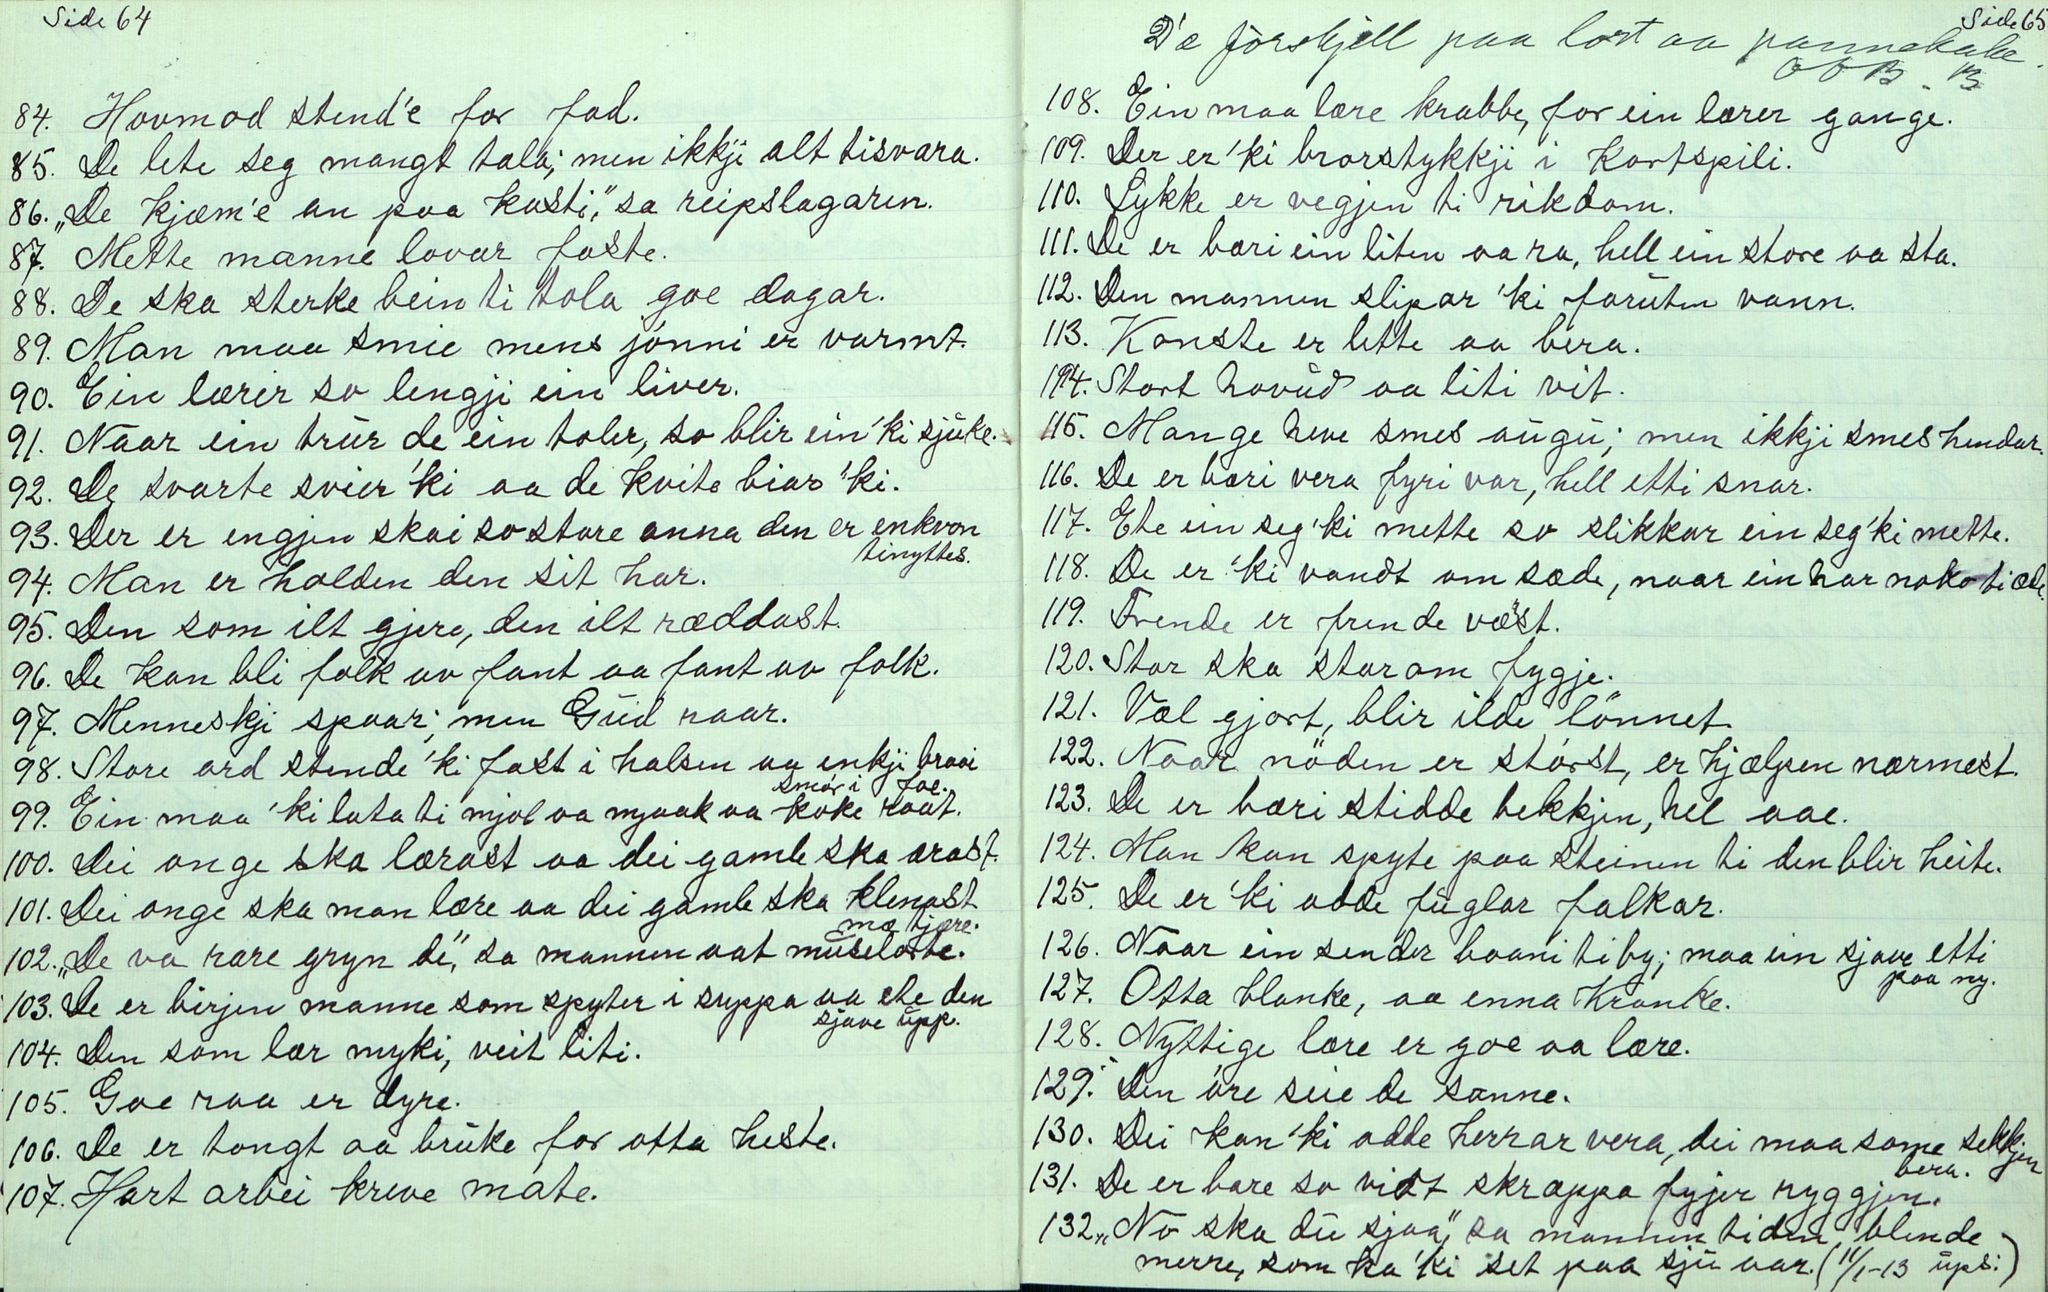 Side 64
84. Hovmod stend'e for fad.
85. De lete seg mangt tala; men ikkji alt tisvara.
86. „De kjæm'e an paa kasti," sa reipslagaren.
87. Mette manne lovar faste.
88. De ska sterke bein ti tola goe dagar.
89. Man maa smie mens jónni er varmt.
90. Ein lærir so lengji ein liver.
91. Naar ein trur de ein toler, so blir ein 'ki sjuke.
92. De svarte svier 'ki aa de kvite biar 'ki.
93. Der er engjen skai so stare anna den er enkvon
tinyttes.
94. Man er halden den sit har.
95. Den som ilt gjere, den ilt ræddast.
96. De kan bli folk av fant aa fant av folk.
97. Menneskji spaar; men Gud raar.
98. Store ord stende 'ki fast i halsen aa enkji braai
smór i foe.
99. Ein maa 'ki lata ti mjol aa mjaak aa koke raat.
100. Dei onge ska lærast aa dei gamle ska ærast.
101. Dei onge ska man lære aa dei gamle ska klenast
mæ tjære.
102. „De va rare gryn de", sa mannen aat muselorte.
103. De er birjen manne som spyter i suppa aa ete den
sjave upp.
104. Den som lær myki, veit liti.
105. Goe raa er dyre.
106. De er tongt aa bruke for otta heste.
107. Hart arbei kreve mate.
Side 65
D'æ forskjell paa lort aa pannekake.
O O B. B
108. Ein maa lære krabbe, for ein lærer gange.
109. Der er 'ki brorstykkji i Kortspili.
110. Lykke er vegjen ti rikdom.
111. De er bæri ein liten aa ra, hell ein store aa sta.
112. Den mannen slipar 'ki foruten vann.
113. Konste er lette aa bera.
114. Stort hovud aa liti vit.
115. Mange heve smes augu; men ikkji smes hendar.
116. De er bæri vera fyri var, hell etti snar.
117. Ete ein seg 'ki mette so slikkar ein seg 'ki mette.
118. De er 'ki vandt om sæde, naar ein har noko ti æde.
119. Frende er frende væst.
120. Stor ska starom fygje.
121. Væl gjort, blir ilde lönnet.
122. Naar nöden er stórst, er hjælpen nærmest.
123. De er bæri stidde bekkjen, hel aae.
124. Man kan spyte paa steinen ti den blir heite.
125. De er 'ki adde fuglar falkar.
126. Naar ein sender baani ti by; maa ein sjave etti
paa ny.
127. Otta blanke, aa enna kranke.
128. Nyttige lære er goe aa lære.
129. Den óre seie de sanne.
130. Dei kan 'ki adde herrar vera, dei maa some sekkjen
bera.
131. De er bare so vidt skræppa fyjer ryggjen.
132. „No ska du sjaa", sa mannen ti den blende
merre, som ha 'ki set paa sju aar. (11/1-13 ups.)